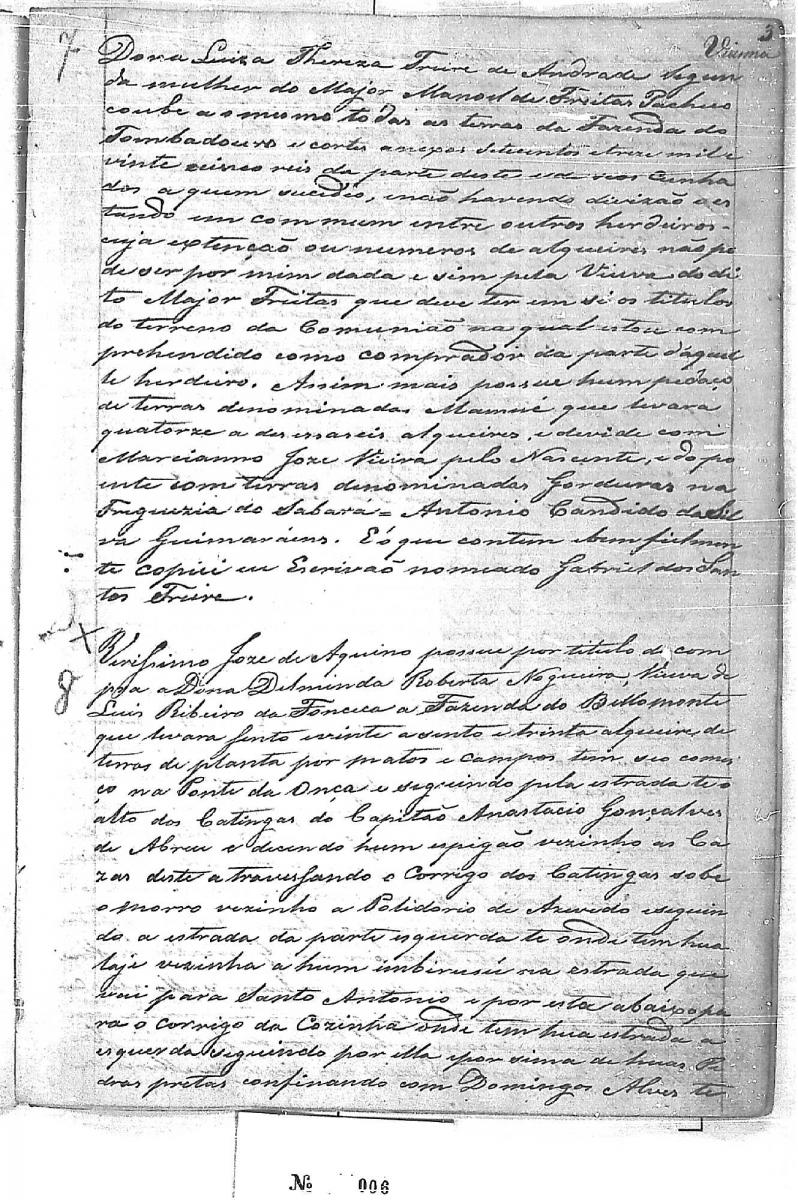 3
Vianna
7
Dona Luiza Thereza Freire de Andrade segun
da mulher do Major Manoel de Freitas Pacheco
coube a o mesmo todas as terras da Fazenda do
Tombadouro e cortes anexos setecentos e treze mil e
vinte e cinco reis da parte deste e de seos Cunha
dos a quem sucedio, e não havendo divizão e es
tando em commum entre outros herdeiros
cuja extenção ou numeros de alqueires não po
de ser por mim dada e sim pela Viuva do di
to Major Freitas que deve ter em si os titulos
do terreno da Comunião na qual estou com
prehendido como comprador da parte d'aquel
le herdeiro. Assim mais possue hum pedaço
de terras denominadas que levará
quatorze a desasseis alqueires, e devide com
Marcianno Joze Vieira pelo Nascente, e do po
ente com terras denominadas Gorduras na
Freguezia do Sabara = Antonio Candido da Sil
va Guimaráens. E é o que contem e bem fielmen
te copiei eu Escrivaõ nomeado Gabriel dos San
tos Freire.
8
Verissimo Joze de Aquino possue por titulo de com
pra a Dona Delminda Roberta Nogueira, Viuva de
Luis Ribeiro da Fonceca a Fazenda do Bellomonte
que levara sento e vinte a sento e trinta alqueires de
terras de planta por matos e campos, tem seo come
ço na Ponte da Onça e seguindo pela estrada te o
alto dos Catingas do Capitão Anastacio Gonçalves
de Abreu e decendo hum espigão vezinho as Ca
zas deste atravessando o Corrigo dos Catingas sobe
o morro vezinho a Polidorio de Azevedo e seguin
do a estrada da parte esquerda te onde tem hua
laje vezinha a hum imbirusú na estrada que
vai para Santo Antonio e por esta abaixo pa
ra o corrigo da Cozinha onde tem hua estrada a
esquerda seguindo por ella e por sima de huas Pe
dras pretas confinando com Domingos Alves te
Nº 006